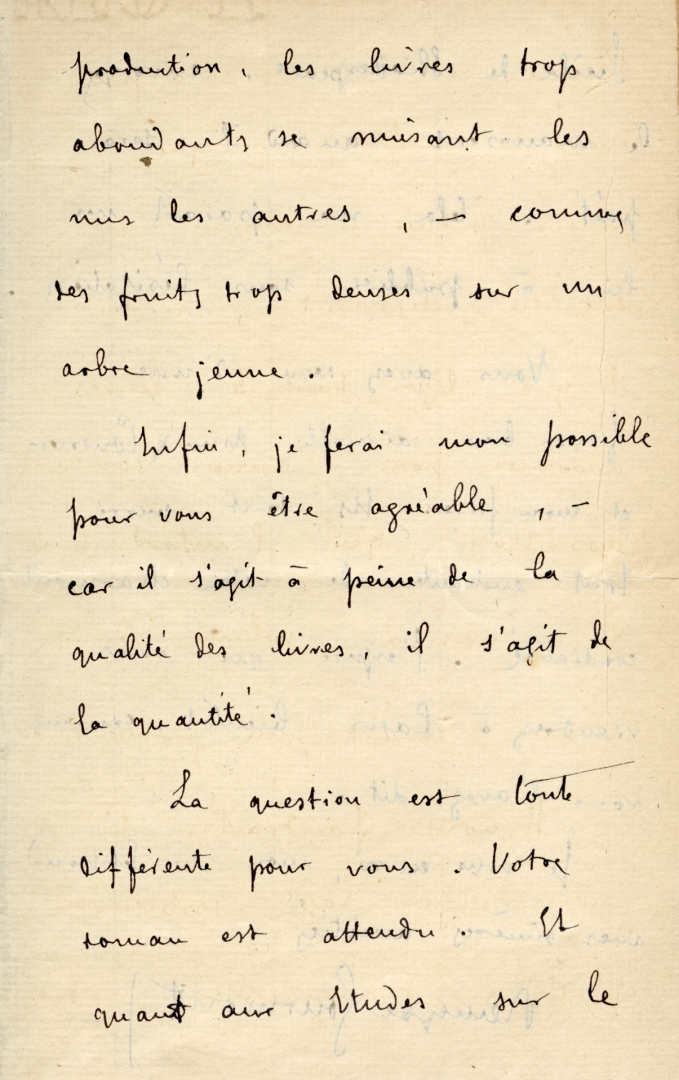 production, les livres trop
abondants se nuisant les
uns les autres, — comme
des fruits trop denses sur un
arbre jeune.
Enfin, je ferai mon possible
pour vous être agréable, —
car il s'agit à peine de la
qualité des livres, il s'agit de
la quantité.
La question est toute
différente pour vous. Votre
roman est attendu. Et
quant aux Etudes sur le